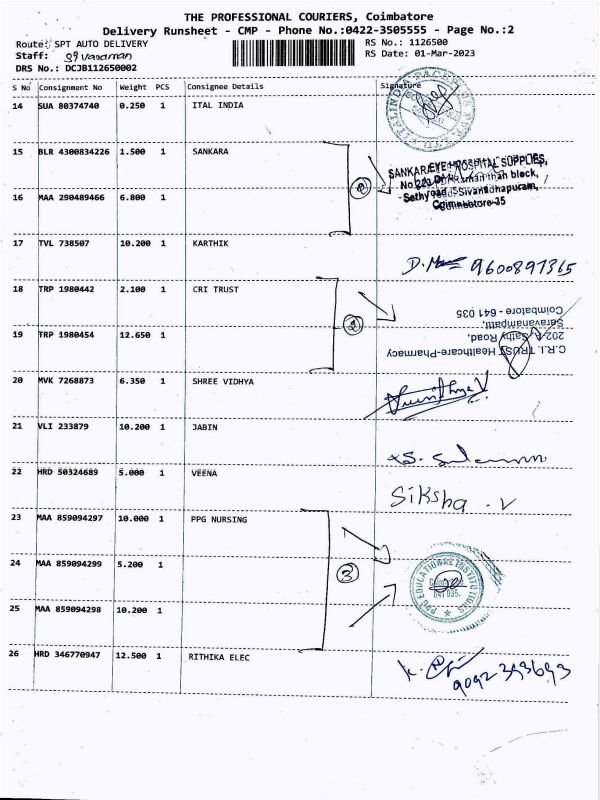 THE PROFESSIONAL COURIERS, Coimbatore
Delivery Runsheet - CMP - Phone No.:0422-3505555 - Page No.:2
Route: SPT AUTO DELIVERY RS No.: 1126500
Staff: RS Date: 01-Mar-2023
DRS No.: DCJB112650002
S No Consignment No Weight PCS Consignee Details Signature
14 SUA 80374740 0.250 1 ITAL INDIA
15 BLR 4300834226 1.500 1 SANKARA
SANKARA EYE HOSPITAL SUPPLIES,
block,
Sathy road, Sivanandhapuram,
Coimbatore-35
16 MAA 290489466 6.800 1
17 TVL 738507 10.200 1 KARTHIK
9600897365
18 TRP 1980442 2.100 1 CRI TRUST
C.R.I. TRUST Healthcare-Pharmacy
202-A, Sathy Road,
Saravanampatti,
Coimbatore - 641 035
19 TRP 1980454 12.650 1
20 MVK 7268873 6.350 1 SHREE VIDHYA
21 VLI 233879 10.200 1 JABIN
22 HRD 50324689 5.000 1 VEENA
Siksha . V
23 MAA 859094297 10.000 1 PPG NURSING
24 MAA 859094299 5.200 1
3
PPG EDUCATIONAL INSTITUTIONS
641 035.
25 MAA 859094298 10.200 1
26 HRD 346770947 12.500 1 RITHIKA ELEC
9092393693